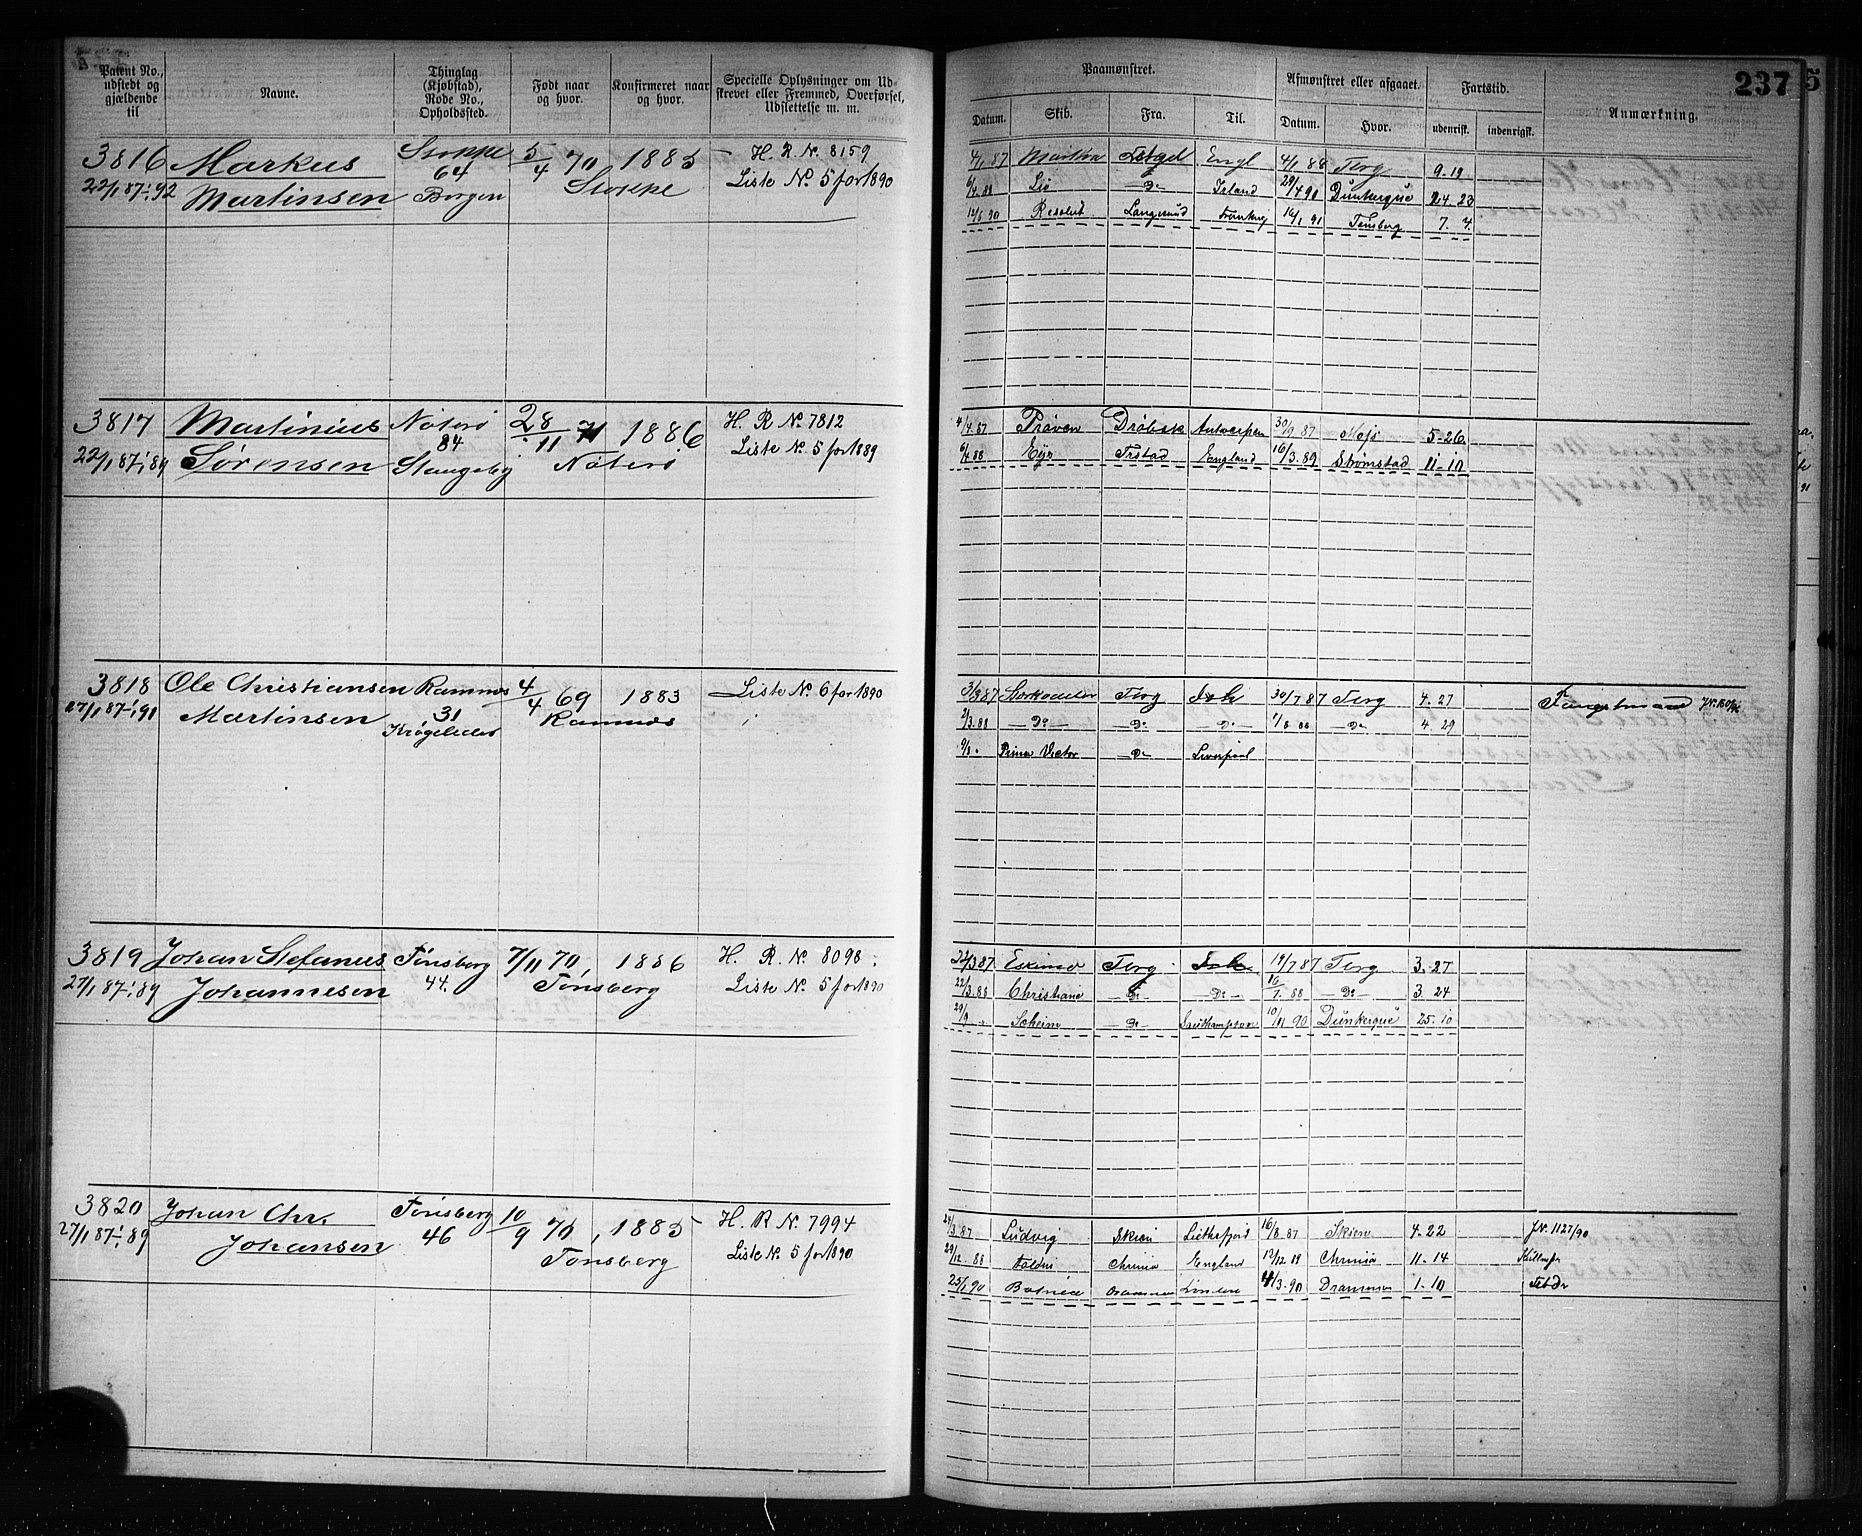 237
Patent No., udstedt og gjældende til
Navne.
Thinglag (Kjøbstad), Rode No., Opholdssted.
Født naar og hvor.
Konfirmeret naar og hvor.
Specielle Oplysninger om Udskrevet eller Fremmed, Overførsel, Udslettelse m. m.
Paamønstret.
Afmønstret eller afgaaet.
Fartstid.
Anmærkning.
Datum. Skib. Fra. Til. Datum. Hvor. udenrisk. indenrigsk.
3816 Markus 5/4 70 1885 H. R. N. 8159
64
22/1 87-1/1 92 Martinsen Borgen Liste No. 5 for 1890
4/1 87 Martha Engl 4/1 88 Tbrg 9-19
6/4 88 Do Island 29/4 90 Dünkerque 24 23
Resolut Langesund 16/1 91 Tønsberg 7. 7.
3817 Martinius Nøterø 28/11 71 1886 H. R No. 7812
84
22/1 87-1/1 89 Sørensen Stangeby Nøterø Liste No. 5 for 1889
4/4 87 Prøven Drøbak Antwerpen 30/9 87 Moss 5-26
6/4 88 Frstad England 16/3 89 Strømstad 11-10
3818 Ole Christiansen Ramnes 4/4 69 1883 Liste No. 6 for 1890
27/1 87-1/1 91 Martinsen 31 Ramnes
3/3 87 Tbrg Ish 30/7 87 Tbrg 4. 27 Fangstmand
2/3 88 Do Do Do 1/8 88 Do 4. 29
Prima Victor Do Liverpool
3819 Johan Stefanus Tønsberg 7/11 70, 1886 H. R. No. 8098
27/1 87-1/1 89 Johannesen 44. Tønsberg Liste No. 5 for 1890
22/3 87 Eskimo Tbrg Ish 19/7 87 Tbrg 3. 27
22/3 88 Christiane Do Do 16/7 88 Do 3. 24
29/9 Solheim Do Southampton 10/11 90 Dünkerque 25. 10
3820 Johan Chr. Tønsberg 10/9 70, 1885 H. R No. 7994
27/1 87-1/1 89 Johansen 46 Tønsberg Liste No. 5 for 1890
24/3 87 Ludvig Skien 16/8 87 Skien 4-22 JN. 1127/90
Chrnia England Chrnia 11-14
25/1 90 Botnia Drammen 4/3 90 Drammen 1-10